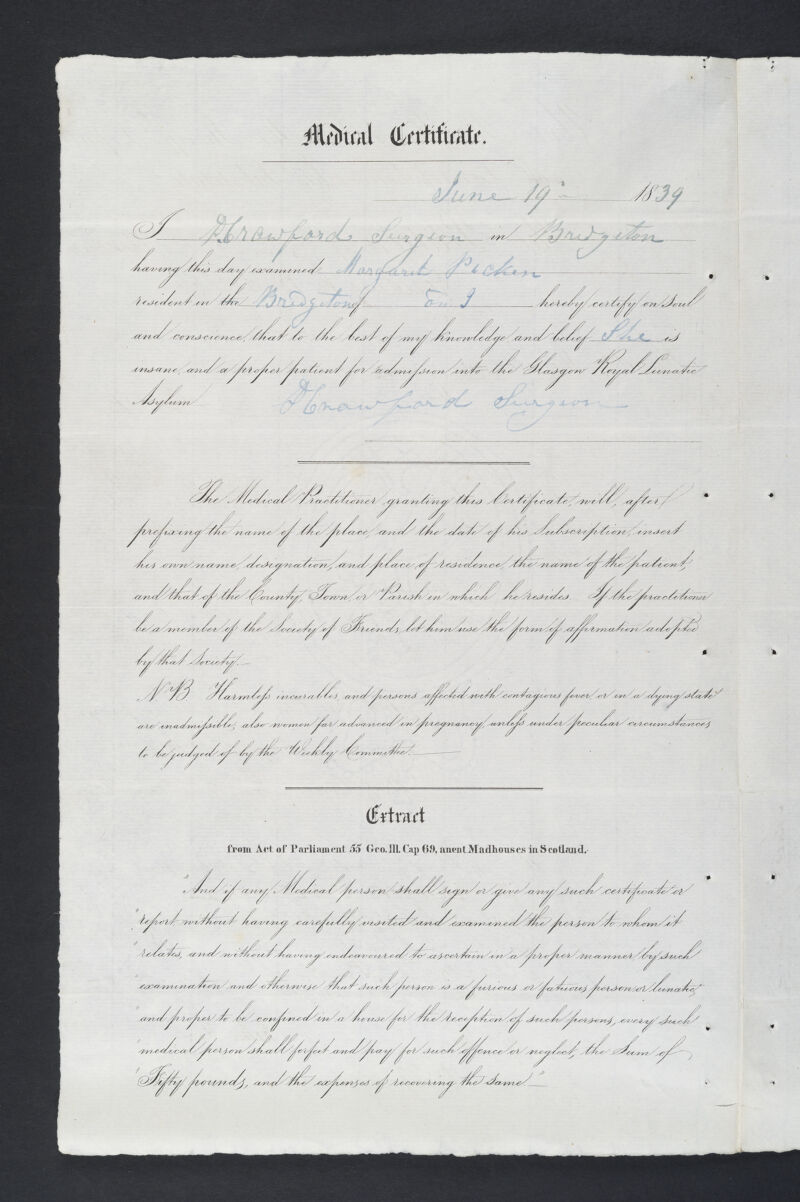 Medical Certificate.
June 19th 1839
I Crawford Surgeon in Bridgeton
having this day examined Margaret Picken
resident in the Bridgeton of hereby certify on Soul
and conscience, that to the best of my knowledge and belief She is
insane, and a proper patient for admission into the Glasgow Royal Lunatic
Asylum Crawford Surgeon
The Medical Practitioner, granting this Certificate, will, after
prefixing the name of the place, and the date of his Subscription, insert
his own name, designation, and place of residence, the name of the patient,
and that of the County, Town or Parish in which he resides. If the practitioner
be a member of the Society of Friends, let him use the form of affirmation adopted
by that Society.—
NB Harmless incurables, and persons affected with contagious fever, or in a dying state
are inadmissible; also women far advanced in pregnancy, unless under peculiar circumstances,
to be judged of by the Weekly Committee.—
Extract
from Act of Parliament 55 Geo. III. Cap 69, anent Madhouses in Scotland.
"And if any Medical person shall sign or give any such certificate or
"report, without having carefully visited and examined the person to whom it
"relates, and without having endeavoured to ascertain in a proper manner by such
"examination and otherwise that such person is a furious or fatuous person or lunatic,
"and proper to be confined in a house for the reception of such persons, every such
"medical person shall forfeit and pay for such offence or neglect, the Sum of
"Fifty pounds, and the expenses of recovering the same.—"